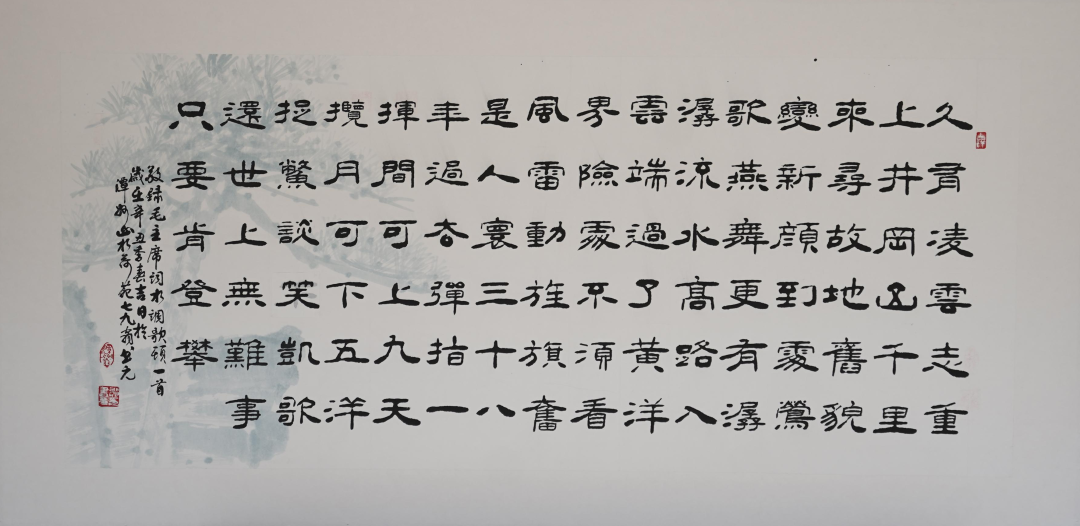 久有凌雲志重
上井岡山千里
來尋故地舊貌
變新顔到處鶯
歌燕舞更有潺
潺流水高路入
雲端過了黃洋
界險處不須看
風雷動旌旗奮
是人寰三十八
年過去彈指一
揮間可上九天
攬月可下五洋
捉鱉談笑凱歌
還世上無難事
只要肯登攀
敬錄毛主席詞水调歌頭一首
歲在辛丑季春吉日於
山水荷苑七九翁